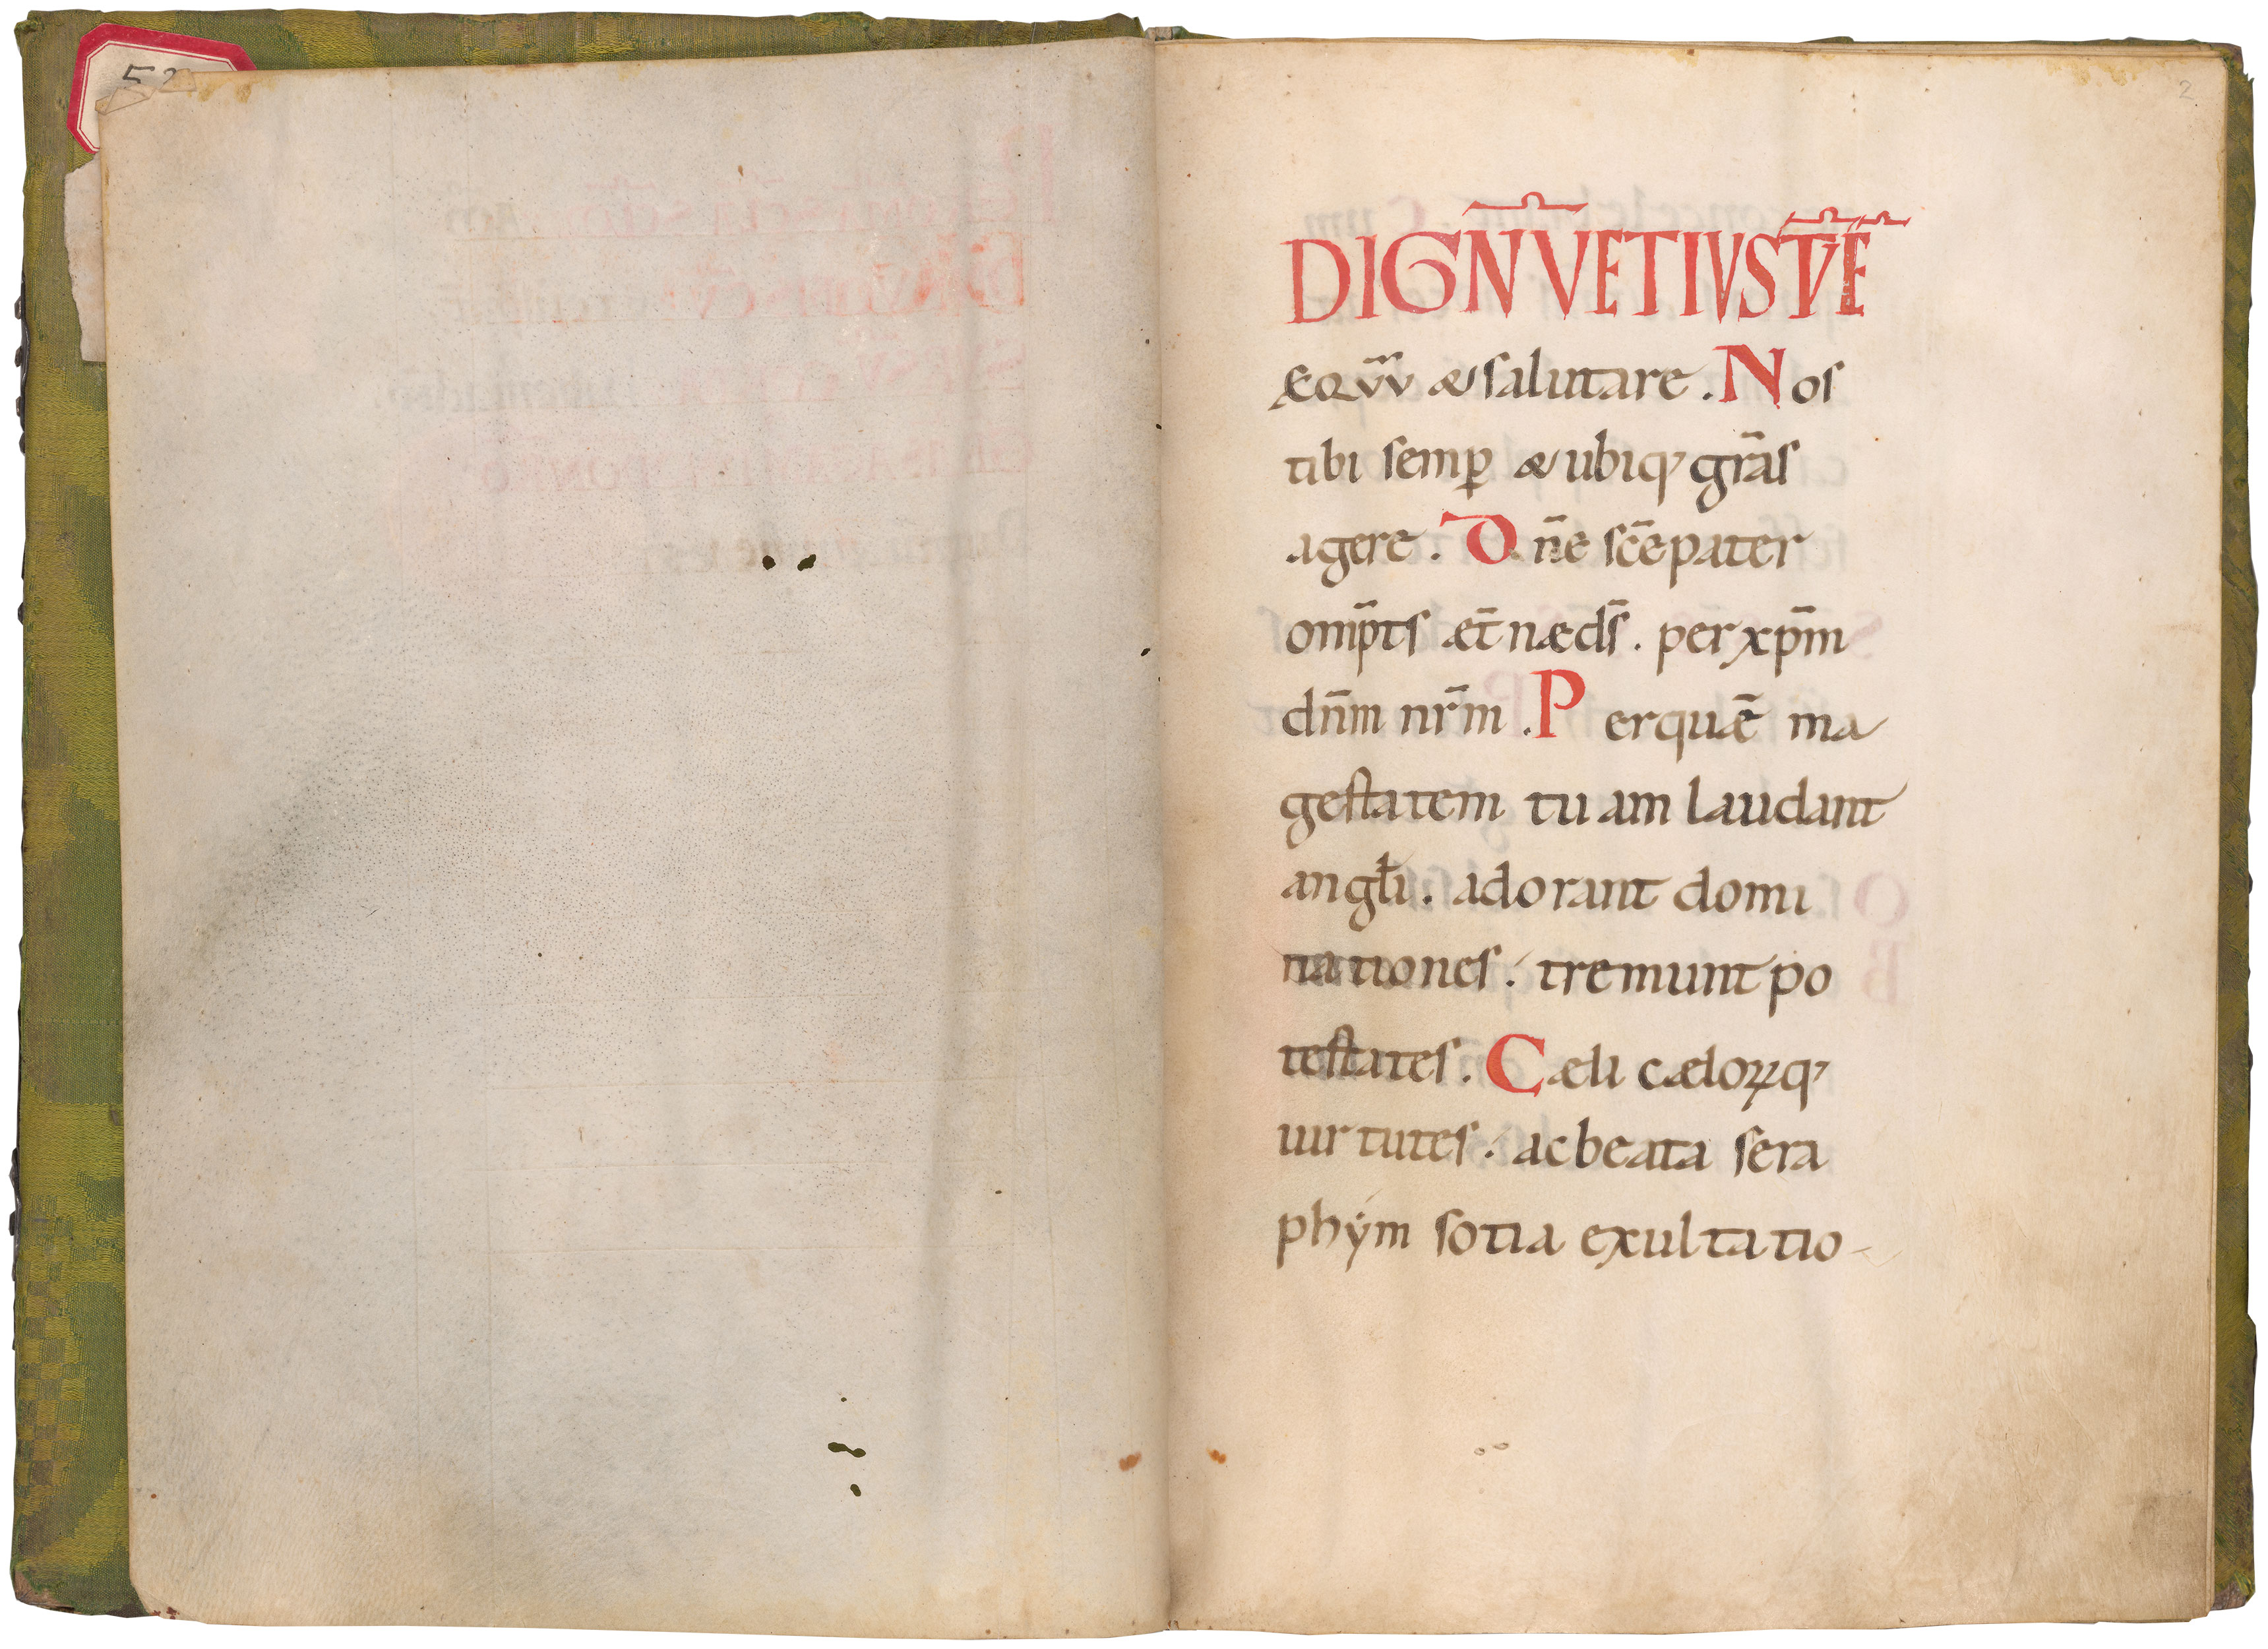 52
2
DIGN̄VETIVST̄V̄Ē
ÆQVV̄ & salutare. Nos
tibi semꝑ & ubiq; grās
agere. Dn̄e scēpater
omp̄ts æt̄næds̄. per xp̄m
dn̄m nr̄m. Per quē ma
gestatem tuam laudant
angłi. adorant domi
nationes. tremunt po
testates. Cæli cæloꝝq;
uirtutes. ac beata sera
phẏm sotia exultatio-